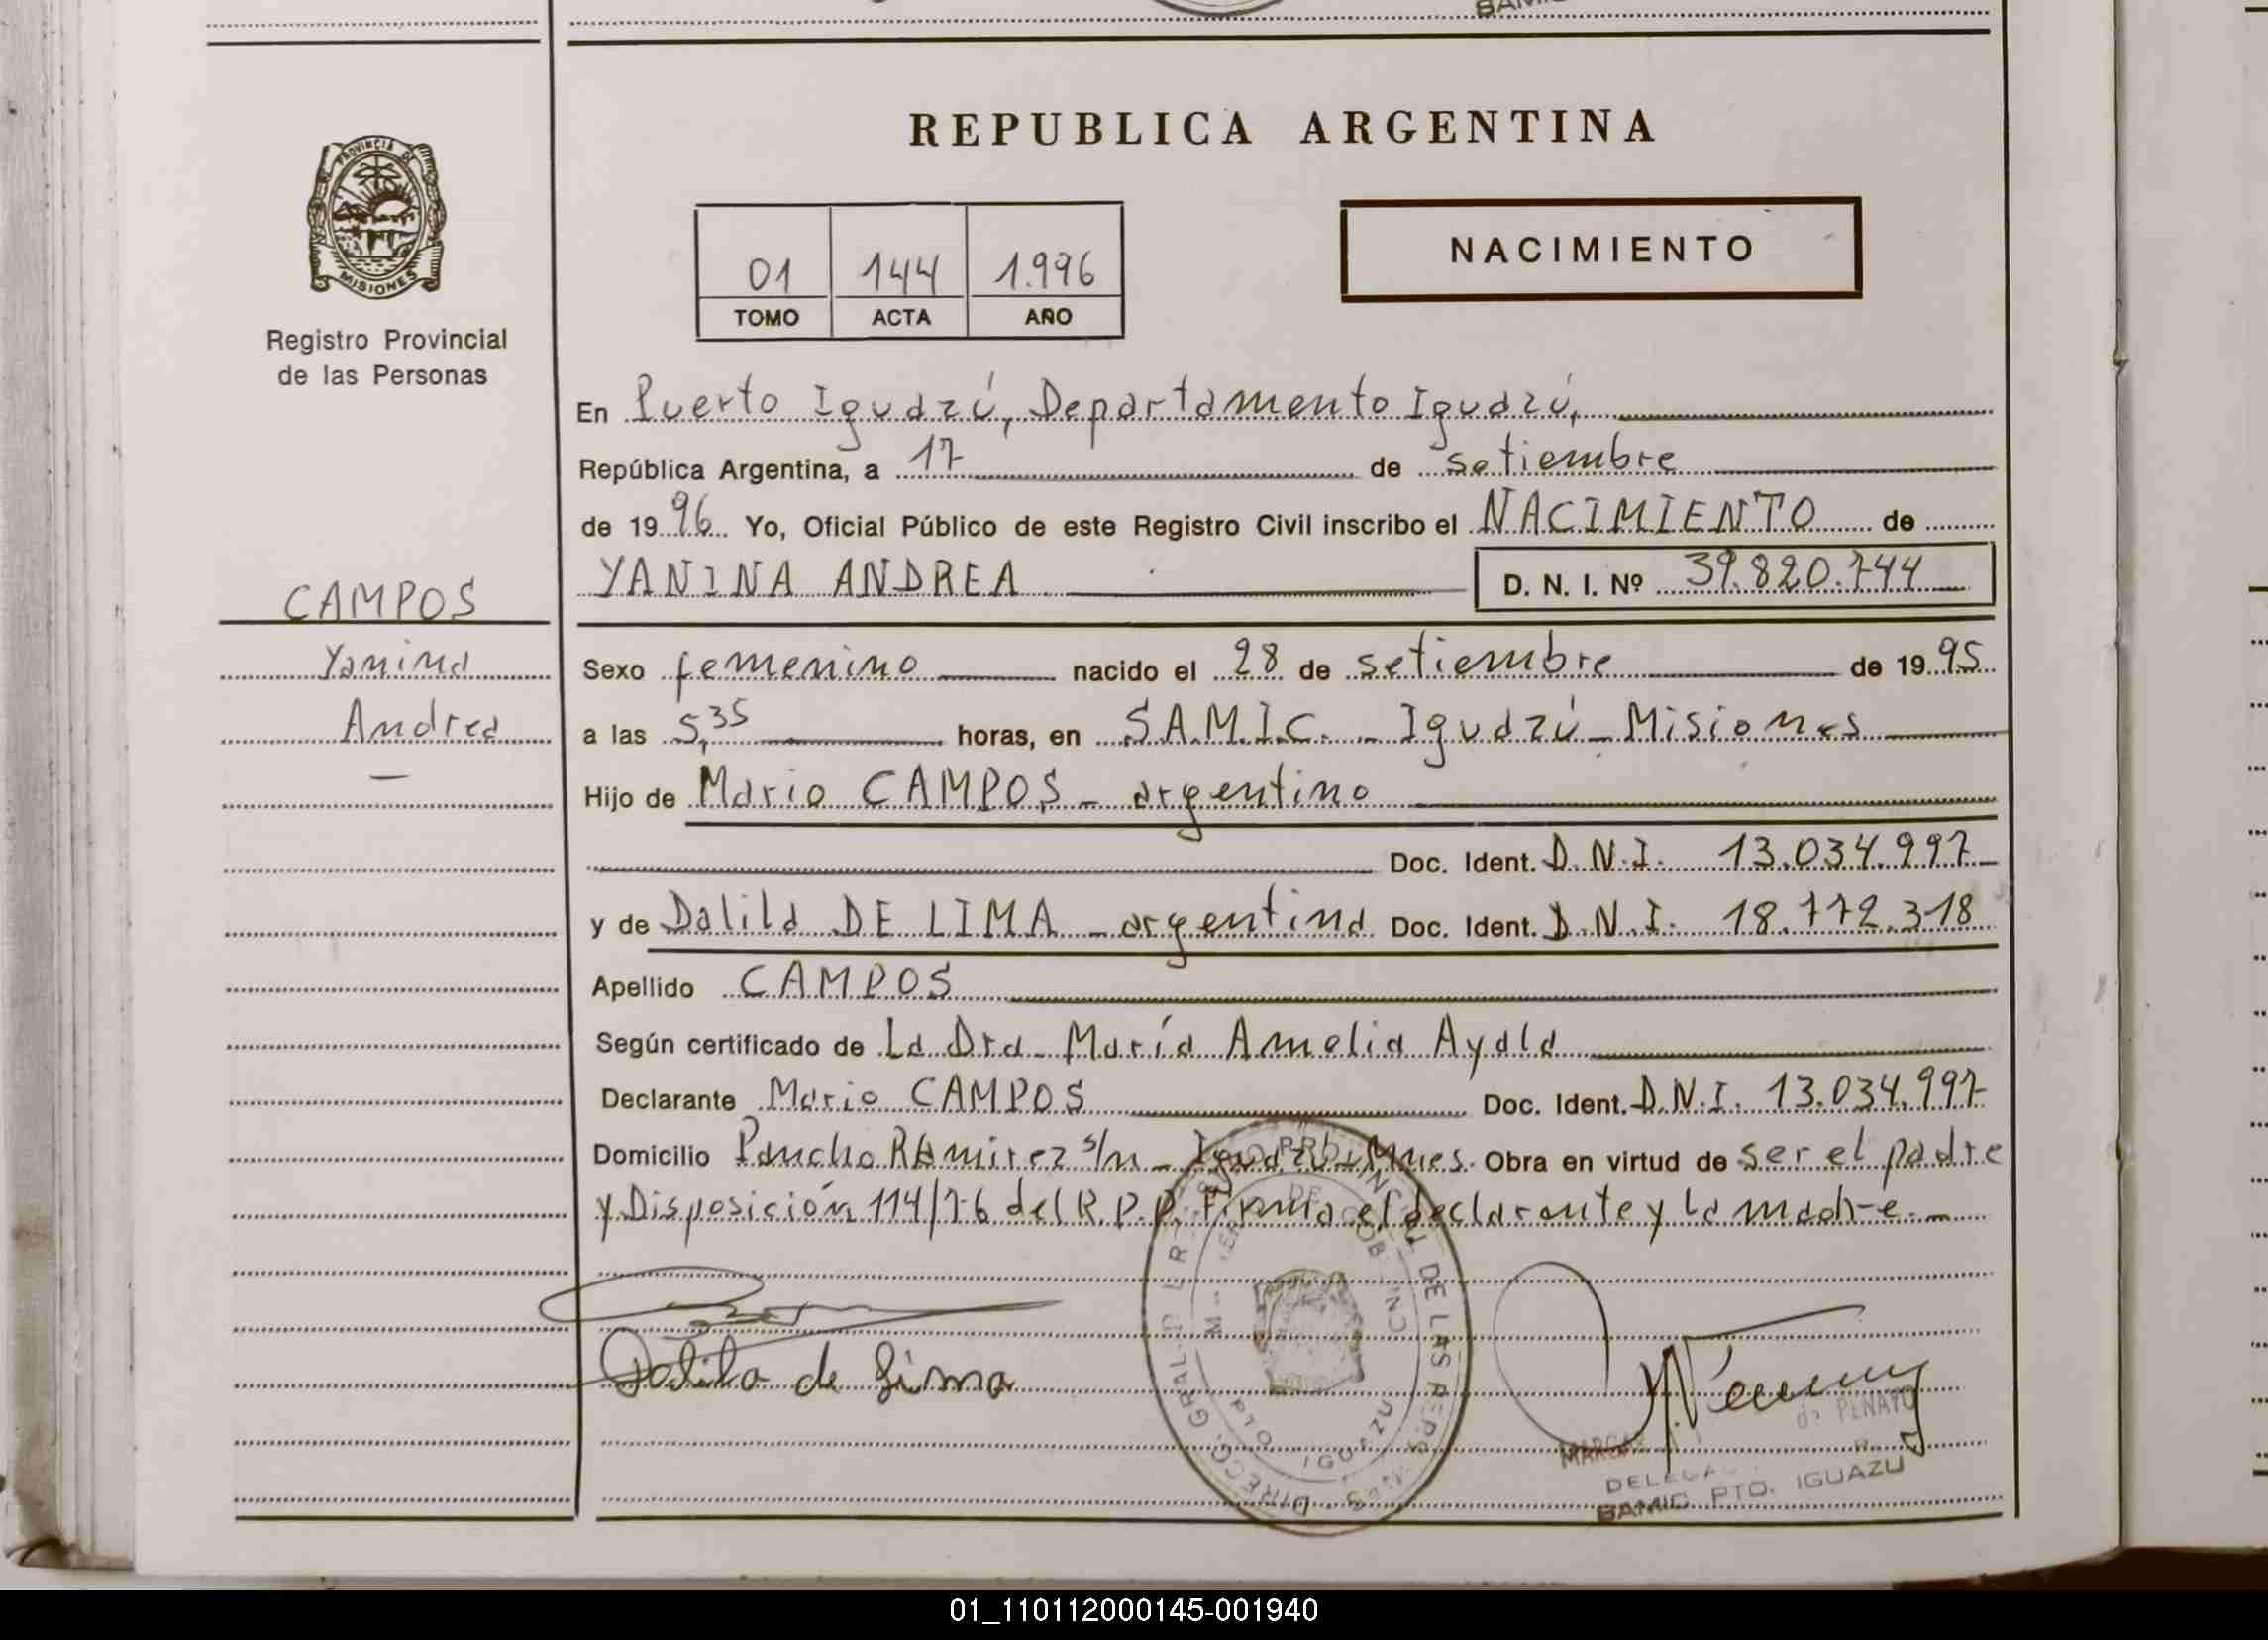 REPUBLICA ARGENTINA
PROVINCIA DE
MISIONES
Registro Provincial
de las Personas
01 144 1.996
TOMO ACTA AÑO
NACIMIENTO
En Puerto Iguazú, Departamento Iguazú,
República Argentina, a 17 de setiembre
de 1996 Yo, Oficial Público de este Registro Civil inscribo el NACIMIENTO de
YANINA ANDREA D. N. I. Nº 39.820.744
CAMPOS
Yanina
Andrea
Sexo femenino nacido el 28 de setiembre de 1995
a las 5,35 horas, en S.A.M.I.C. - Iguazú - Misiones
Hijo de Mario CAMPOS - argentino
Doc. Ident. D.N.I. 13.034.997
y de Dalila DE LIMA - argentina Doc. Ident. D.N.I. 18.772.318
Apellido CAMPOS
Según certificado de La Dra. María Amelia Ayala
Declarante Mario CAMPOS Doc. Ident. D.N.I. 13.034.997
Domicilio Pancho RAmirez s/n - Iguazú - Mnes. Obra en virtud de ser el padre
y Disposición 114/76 del R.P.P. Firma el declarante y la madre. -
Dalila de Lima
DE LAS PERS
DIRECC. GRAL.
PTO IGUAZU
de PENAYO
PTO. IGUAZU
01_110112000145-001940